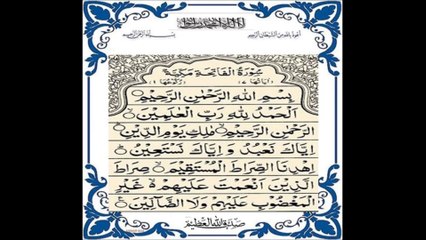 اعوذ بالله من الشيطان الرجيم
بسم الله الرحمن الرحيم
سُوْرَةُ الْفَاتِحَةِ مَكِّيَّةٌ
بِسْمِ اللهِ الرَّحْمٰنِ الرَّحِيْمِ
اَلْحَمْدُ لِلّٰهِ رَبِّ الْعٰلَمِيْنَ
الرَّحْمٰنِ الرَّحِيْمِ مٰلِكِ يَوْمِ الدِّيْنِ
اِيَّاكَ نَعْبُدُ وَ اِيَّاكَ نَسْتَعِيْنُ
اِهْدِنَا الصِّرَاطَ الْمُسْتَقِيْمَ صِرَاطَ
الَّذِيْنَ اَنْعَمْتَ عَلَيْهِمْ غَيْرِ
الْمَغْضُوْبِ عَلَيْهِمْ وَلَا الضَّآلِّيْنَ
صَدَقَ اللهُ الْعَظِيْمُ